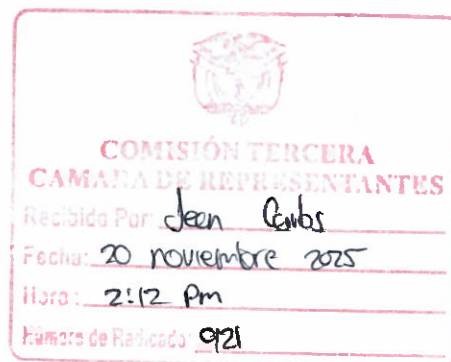 COMISIÓN TERCERA
CAMARA DE REPRESENTANTES
Recibido Por: Jean Carlos
Fecha: 20 noviembre 2025
Hora: 2:12 Pm
Número de Radicado: 0121